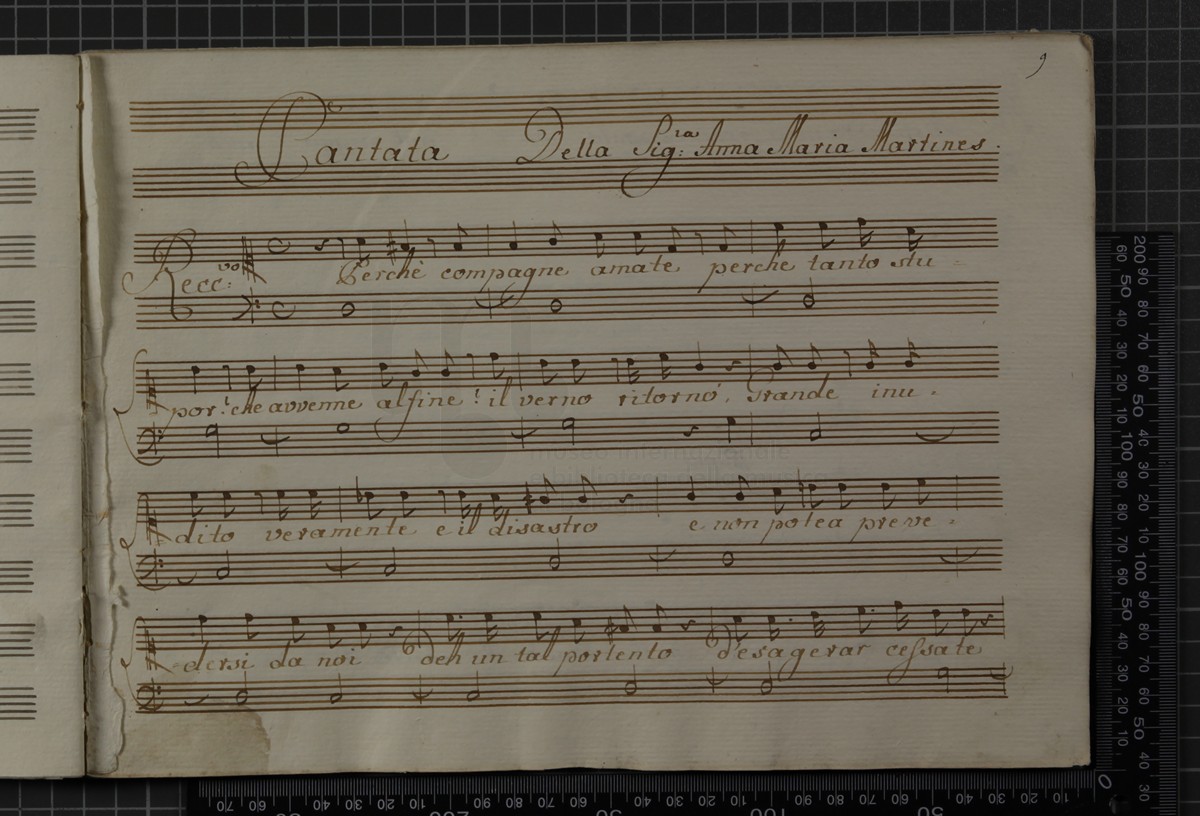 9
Cantata Della Sig:ra Anna Maria Martines.
Recc:vo Perchè compagne amate, perche tanto stu =
por! che avvenne alfine! il verno ritornò, Grande inu =
dito veramente e il disastro e non potea preve =
=dersi da noi deh un tal portento d'esagerar cessate
museo internazionale
e biblioteca della musica